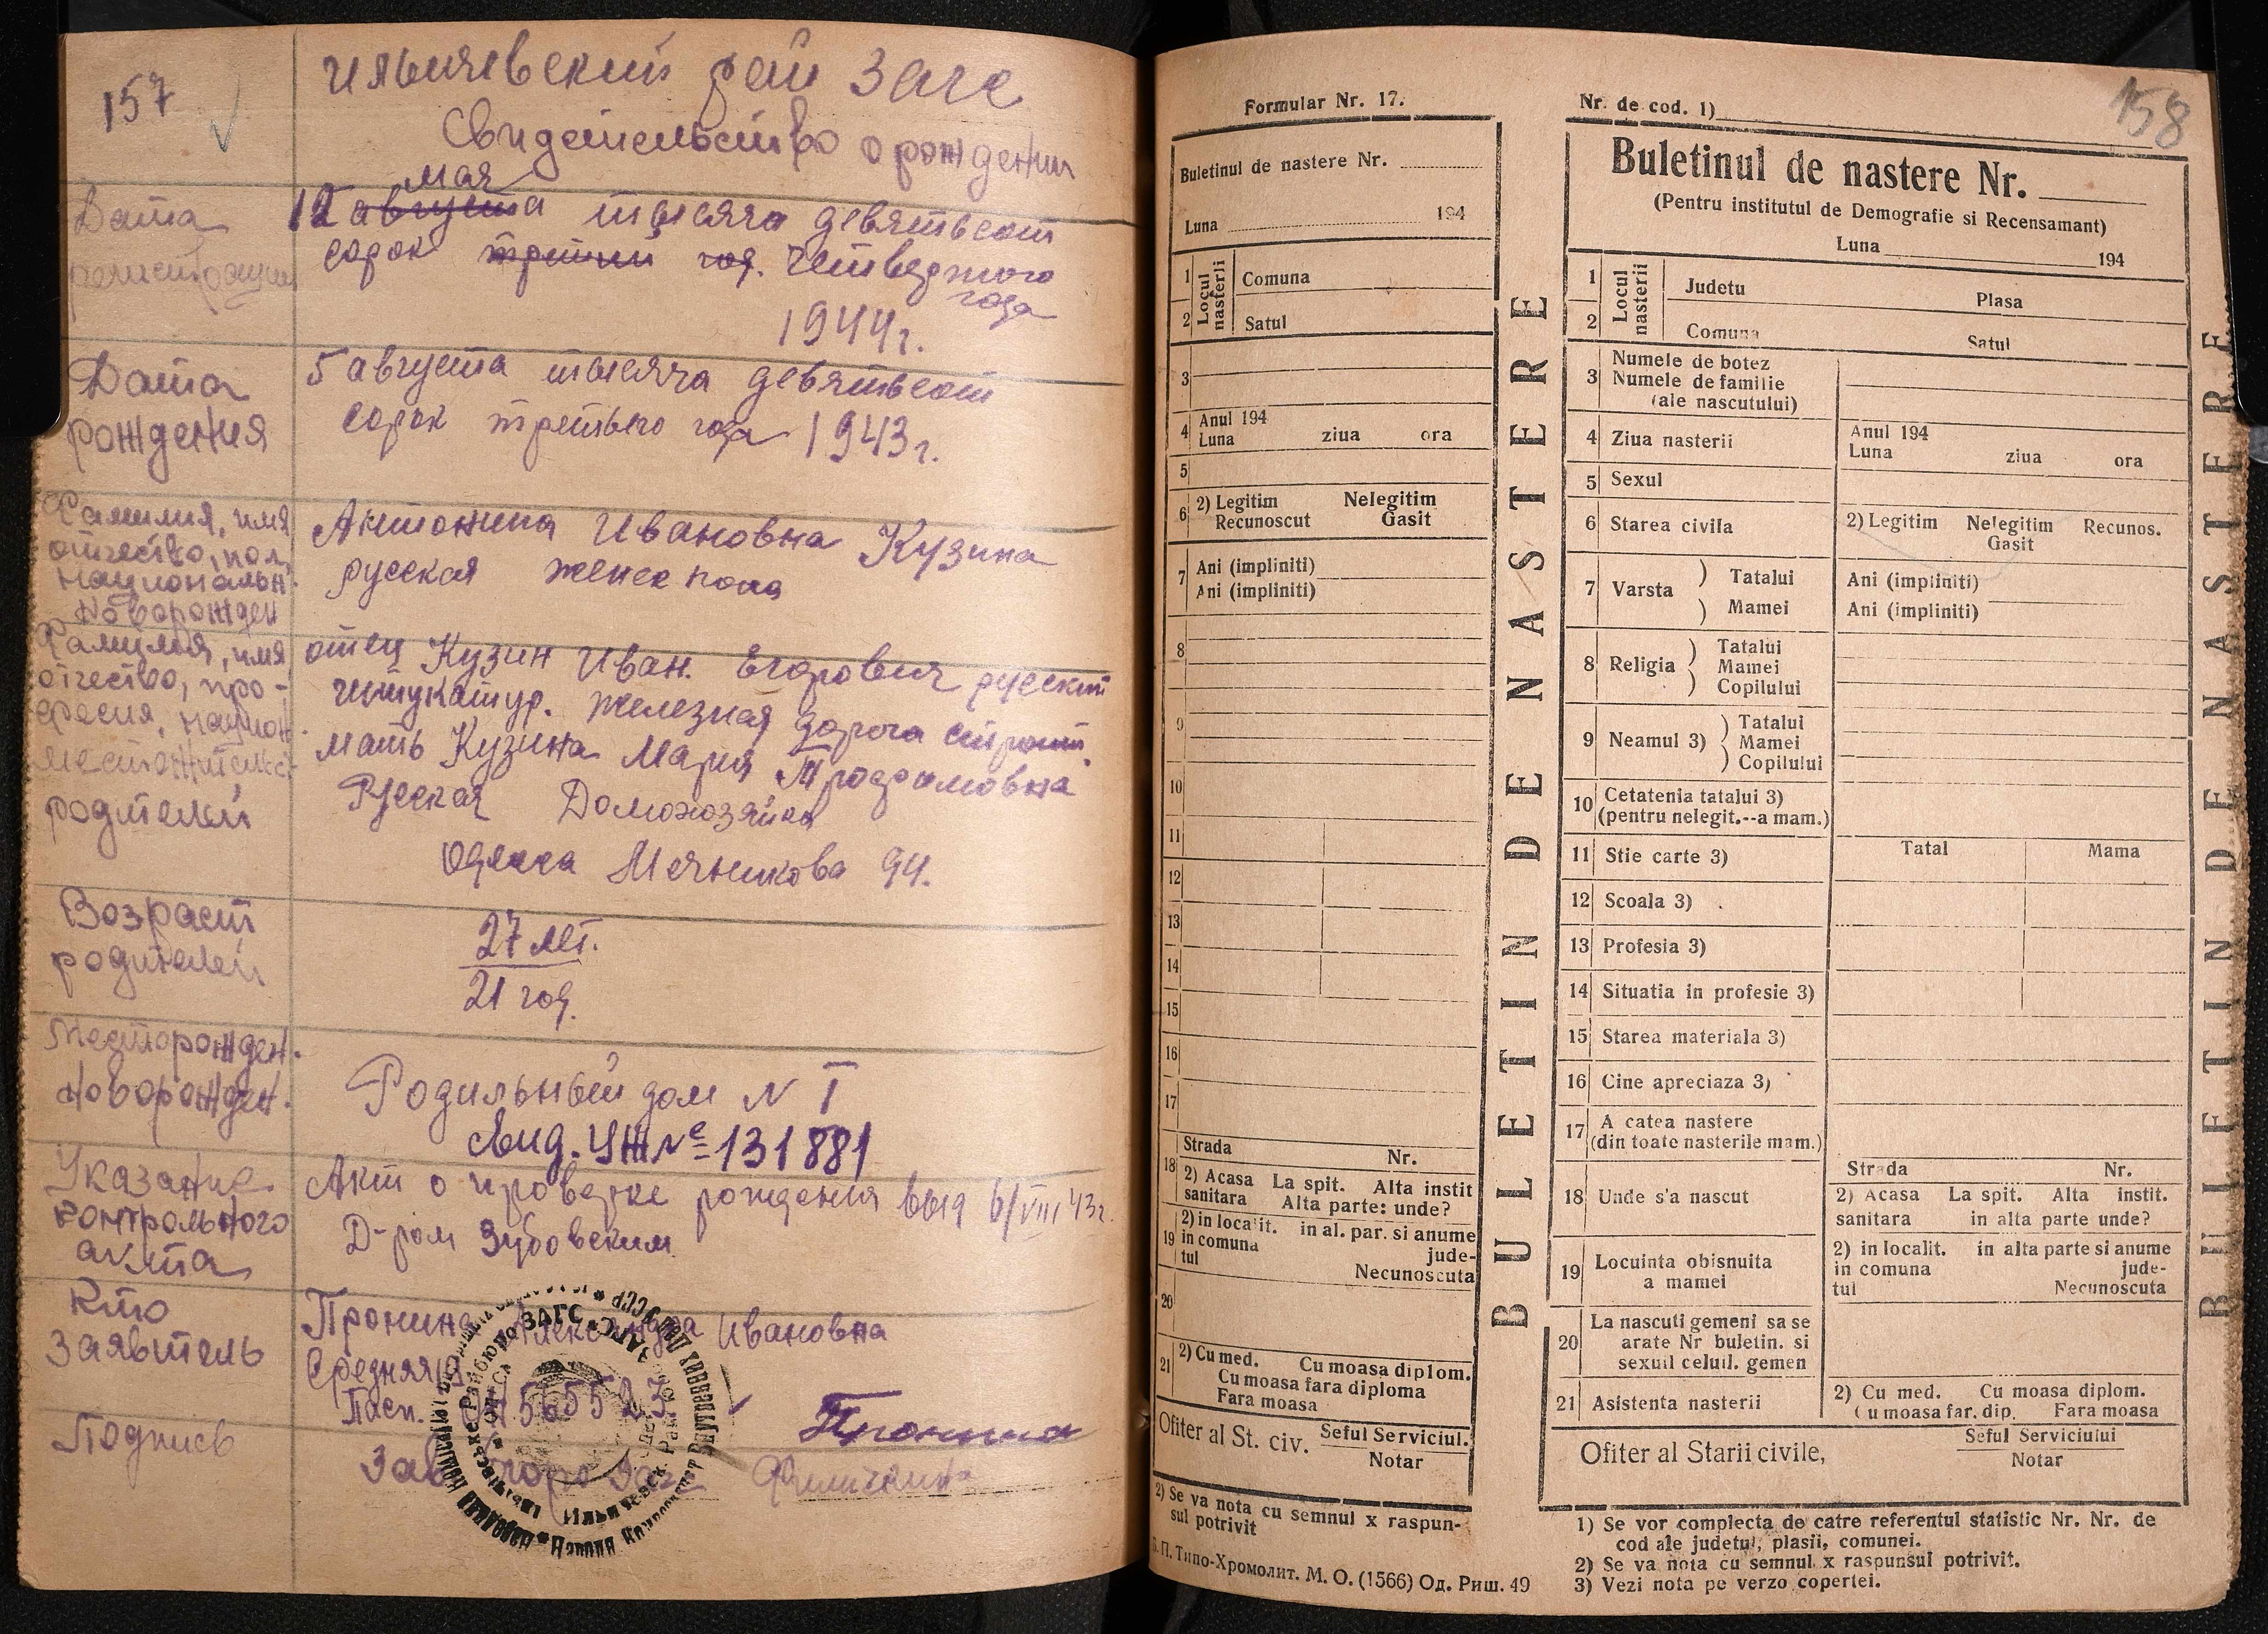 157
Ильичевский рай Загс
Свидетельство о рождении
Дата
регистрации
мая
12 августа тысяча девятьсот
сорок третий год. четвертого
года
1944 г.
Дата
рождения
5 августа тысяча девятьсот
сорок третьего года 1943 г.
Фамилия, имя
отчество, пол,
национальн.
новорожден
Антонина Ивановна Кузина
русская женск пола
Фамилия, имя
отчество, про-
фесия, национ.
местожительс
родителей
отец Кузин Иван. Егорович русский
штукатур. железная дорога строит.
мать Кузина Мария Трофимовна
Русская Домохозяйка
Одесса Мечникова 94.
Возраст
родителей
27 лет.
21 год.
Месторожден.
новорожден.
Родильный дом N I
Свид. УЖ № 131881
Указание
контрольного
акта
Акт о проверке рождения выд 6/VIII 43г.
Д-ром Зубовским
Кто
заявитель
Пронина Александра Ивановна
Средняя
Пасп. 565523
Подпись
Пронина
Зав Загс
158
Formular Nr. 17.
Buletinul de nastere Nr.
Luna 194
1 Locul nasterii Comuna
2 Satul
3
4 Anul 194
Luna ziua ora
5
6 2) Legitim Nelegitim
Recunoscut Gasit
7 Ani (impliniti)
Ani (impliniti)
8
9
10
11
12
13
14
15
16
17
Strada Nr.
18 2) Acasa La spit. Alta instit
sanitara Alta parte: unde?
19 2) in localit. in al. par. si anume
in comuna jude-
tul Necunoscuta
20
21 2) Cu med. Cu moasa diplom.
Cu moasa fara diploma
Fara moasa
Ofiter al St. civ. Seful Serviciul.
Notar
2) Se va nota cu semnul x raspun-
sul potrivit
Б. П. Типо-Хромолит. М. О. (1566) Од. Риш. 49
BULETIN DE NASTERE
Nr. de cod. 1)
Buletinul de nastere Nr.
(Pentru institutul de Demografie si Recensamant)
Luna 194
1 Locul nasterii Judetu Plasa
2 Comuna Satul
3 Numele de botez
Numele de familie
(ale nascutului)
4 Ziua nasterii Anul 194
Luna ziua ora
5 Sexul
6 Starea civila 2) Legitim Nelegitim Recunos.
Gasit
7 Varsta ) Tatalui Ani (impliniti)
) Mamei Ani (impliniti)
8 Religia ) Tatalui
Mamei
) Copilului
9 Neamul 3) ) Tatalui
Mamei
) Copilului
10 Cetatenia tatalui 3)
(pentru nelegit.--a mam.)
11 Stie carte 3) Tatal Mama
12 Scoala 3)
13 Profesia 3)
14 Situatia in profesie 3)
15 Starea materiala 3)
16 Cine apreciaza 3)
17 A catea nastere
(din toate nasterile mam.)
Strada Nr.
18 Unde s'a nascut 2) Acasa La spit. Alta instit.
sanitara in alta parte unde?
19 Locuinta obisnuita
a mamei
2) in localit. in alta parte si anume
in comuna jude-
tul Necunoscuta
20 La nascuti gemeni sa se
arate Nr buletin. si
sexul celuil. gemen
21 Asistenta nasterii 2) Cu med. Cu moasa diplom.
Cu moasa far. dip. Fara moasa
Ofiter al Starii civile, Seful Serviciului
Notar
1) Se vor complecta de catre referentul statistic Nr. Nr. de
cod ale judetul, plasii, comunei.
2) Se va nota cu semnul x raspunsul potrivit.
3) Vezi nota pe verzo copertei.
BULETIN DE NASTERE